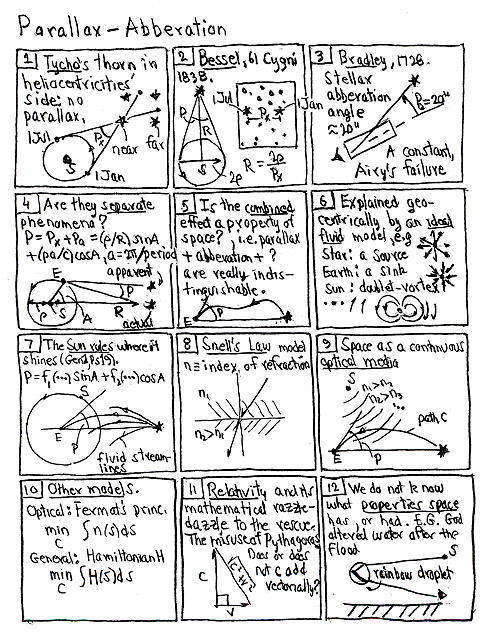 Parallax-Abberation
1 Tycho's thorn in
heliocentricities'
side: no
parallax,
1 Jul
Px
near far
S
1 Jan
2 Bessel, 61 Cygni
1838.
1 Jul
1 Jan
Px
Px
R
S
2ρ
R = 2ρ/Px
3 Bradley, 1728.
Stellar
abberation
angle
≈20"
Pa=20"
A constant,
Airy's failure
4 Are they separate
phenomena?
P = Px + Pa = (ρ/R) sinA
+ (ρa/c) cosA, a = 2π/period
E
apparent
P
ρ S
A
R
actual
5 Is the combined
effect a property of
space?, i.e. parallax
+ abberation + ?
are really indis-
tinguishable.
E
P
6 Explained geo-
centrically by an ideal
fluid model, e.g
Star: a source
Earth: a sink
Sun: doublet-vortex
7 The Sun rules where it
shines (Gerd, Ps19).
P = f1(...) sinA + f2(...) cosA
S
E
P
fluid stream-
lines
8 Snell's Law model
n = index of refraction
n1
n2>n1
9 Space as a continuous
optical media
S
n1>n2
n2>n3
...
path C
E
P
10 Other models.
Optical: Fermat's princ.
min ∫ n(s) ds
C
General: Hamiltonian H
min ∫ H(s) ds
C
11 Relativity and its
mathematical razzle-
dazzle to the rescue.
The misuse of Pythagoras
Does or does
not c add
vectorially?
C
√C²+V²
V
12 We do not know
what properties space
has, or had. E.G. God
altered water after the
flood.
S
rainbow droplet